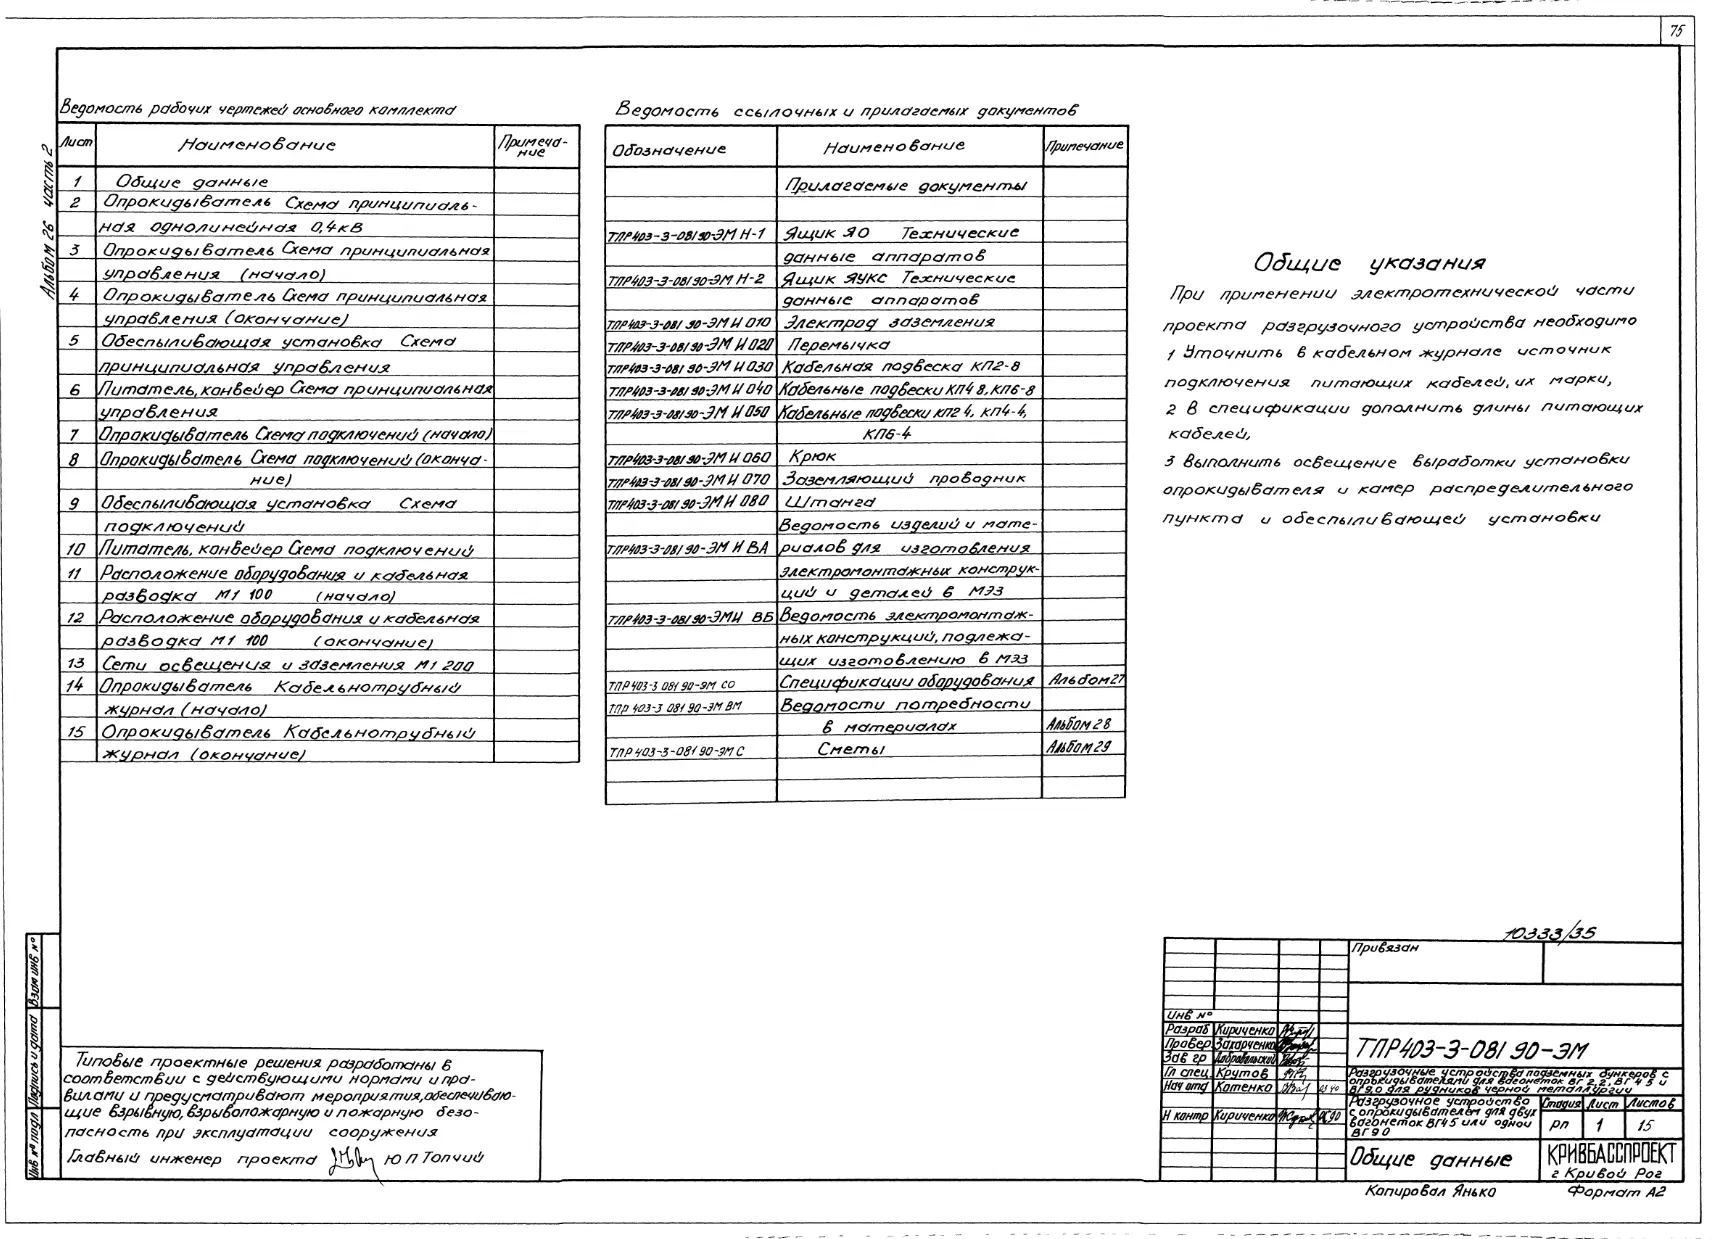 75
Альбом 26 часть 2
Ведомость рабочих чертежей основного комплекта
Лист Наименование Примеча-
ние
1 Общие данные
2 Опрокидыватель Схема принципиаль-
ная однолинейная 0,4кВ
3 Опрокидыватель Схема принципиальная
управления (начало)
4 Опрокидыватель Схема принципиальная
управления (окончание)
5 Обеспыливающая установка Схема
принципиальная управления
6 Питатель, конвейер Схема принципиальная
управления
7 Опрокидыватель Схема подключений (начало)
8 Опрокидыватель Схема подключений (оконча-
ние)
9 Обеспыливающая установка Схема
подключений
10 Питатель, конвейер Схема подключений
11 Расположение оборудования и кабельная
разводка М1 100 (начало)
12 Расположение оборудования и кабельная
разводка М1 100 (окончание)
13 Сети освещения и заземления М1 200
14 Опрокидыватель Кабельнотрубный
журнал (начало)
15 Опрокидыватель Кабельнотрубный
журнал (окончание)
Ведомость ссылочных и прилагаемых документов
Обозначение Наименование Примечание
Прилагаемые документы
ТПР403-3-081 90-ЭМ Н-1 Ящик ЯО Технические
данные аппаратов
ТПР403-3-081 90-ЭМ Н-2 Ящик ЯУКС Технические
данные аппаратов
ТПР403-3-081 90-ЭМ И 010 Электрод заземления
ТПР403-3-081 90-ЭМ И 020 Перемычка
ТПР403-3-081 90-ЭМ И 030 Кабельная подвеска КП2-8
ТПР403-3-081 90-ЭМ И 040 Кабельные подвески КП4 8, КП6-8
ТПР403-3-081 90-ЭМ И 050 Кабельные подвески КП2 4, КП4-4,
КП6-4
ТПР403-3-081 90-ЭМ И 060 Крюк
ТПР403-3-081 90-ЭМ И 070 Заземляющий проводник
ТПР403-3-081 90-ЭМ И 080 Штанга
Ведомость изделий и мате-
ТПР403-3-081 90-ЭМ И ВА риалов для изготовления
электромонтажных конструк-
ций и деталей в МЭЗ
ТПР403-3-081 90-ЭМИ ВБ Ведомость электромонтаж-
ных конструкций, подлежа-
щих изготовлению в МЭЗ
ТПР 403-3 081 90-ЭМ СО Спецификации оборудования Альбом 27
ТПР 403-3 081 90-ЭМ ВМ Ведомости потребности
в материалах Альбом 28
ТПР 403-3-081 90-ЭМ С Сметы Альбом 29
Общие указания
При применении электротехнической части
проекта разгрузочного устройства необходимо
1 Уточнить в кабельном журнале источник
подключения питающих кабелей, их марки,
2 В спецификации дополнить длины питающих
кабелей,
3 Выполнить освещение выработки установки
опрокидывателя и камер распределительного
пункта и обеспыливающей установки
Инв № подл Подпись и дата Взам инв №
Типовые проектные решения разработаны в
соответствии с действующими нормами и пра-
вилами и предусматривают мероприятия, обеспечиваю-
щие взрывную, взрывопожарную и пожарную безо-
пасность при эксплуатации сооружения
Главный инженер проекта Ю П Топчий
10333/35
Привязан
Инв №
Разраб Кириченко
Провер Захарченко
Зав гр Добровольский
Гл спец Крутов
Нач отд Котенко
Н контр Кириченко
ТПР403-3-081 90-ЭМ
Разгрузочные устройства подземных бункеров с
опрокидывателями для вагонеток ВГ 2,2, ВГ 4 5 и
ВГ9,0 для рудников черной металлургии
Разгрузочное устройство
с опрокидывателем для двух
вагонеток ВГ4 5 или одной
ВГ 9 0
Стадия Лист Листов
РП 1 15
Общие данные
КРИВБАССПРОЕКТ
г Кривой Рог
Копировал Янько Формат А2